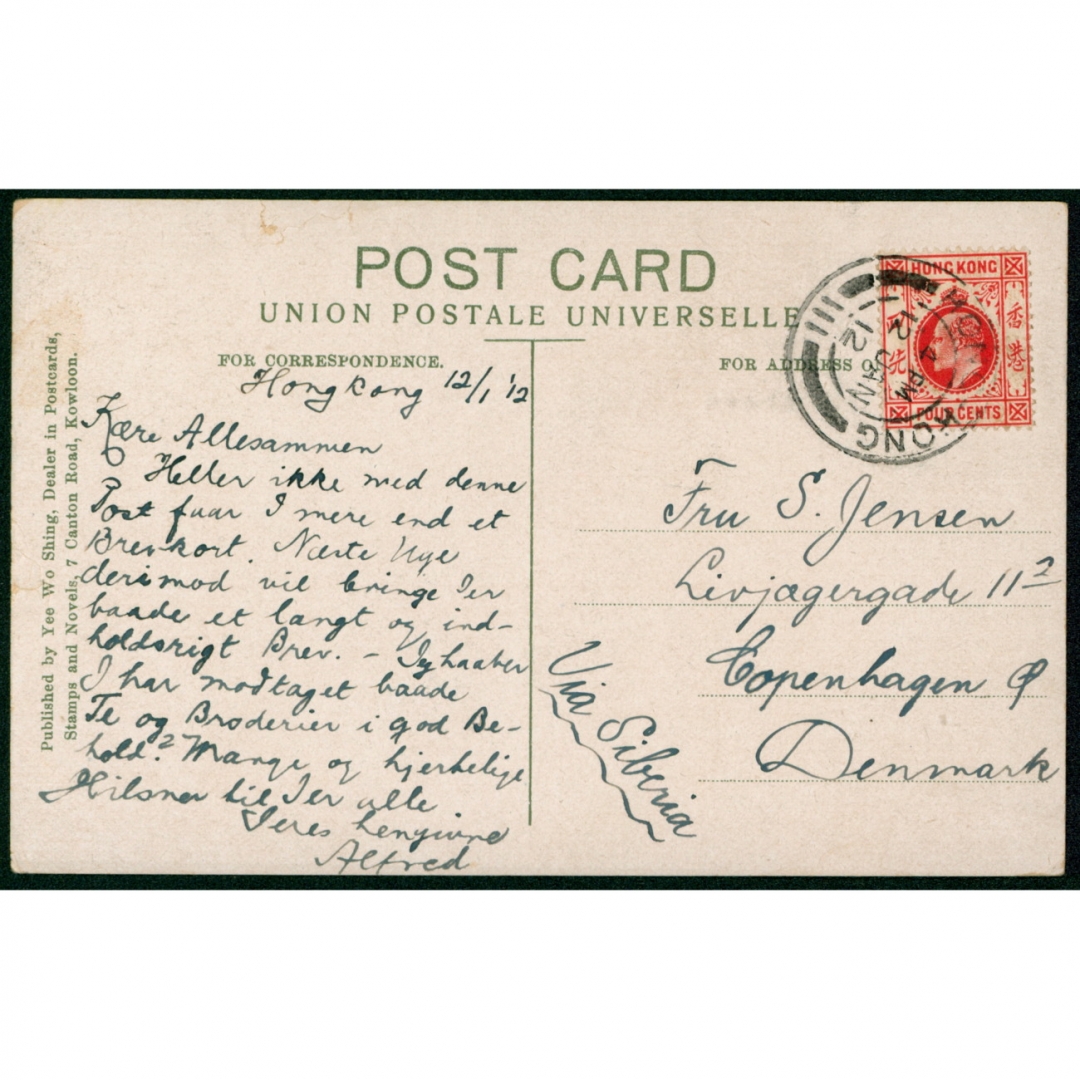 POST CARD
UNION POSTALE UNIVERSELLE
FOR CORRESPONDENCE.
FOR ADDRESS O
Published by Yee Wo Shing, Dealer in Postcards,
Stamps and Novels, 7 Canton Road, Kowloon.
Hongkong 12/1 '12
Kære Allesammen
Heller ikke med denne
Post faar I mere end et
Brevkort. Næste Uge
derimod vil bringe Jer
baade et langt og ind-
holdsrigt Brev. - Jeg haaber
I har modtaget baade
Te og Broderier i god Be-
hold? Mange og hjertelige
Hilsner til Jer alle
Jeres hengivne
Alfred
HONG KONG
香港
FOUR CENTS
KONG
4 PM
12 JAN
12
Fru S. Jensen
Livjægergade 11²
Copenhagen Ø
Denmark
Via Siberia